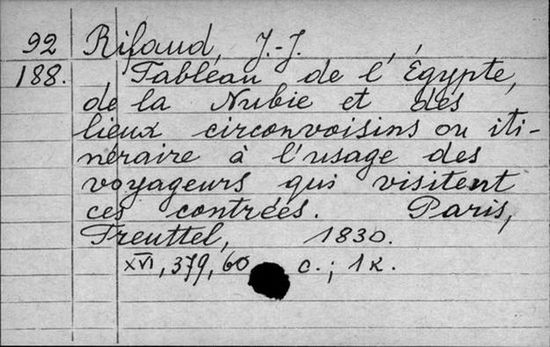 92 Rifaud, J.-J.
188. Tableau de l'Égypte,
de la Nubie et des
lieux circonvoisins ou iti-
néraire à l'usage des
voyageurs qui visitent
ces contrées. Paris,
Treuttel, 1830.
XVI, 379, 60 c.; 1 к.